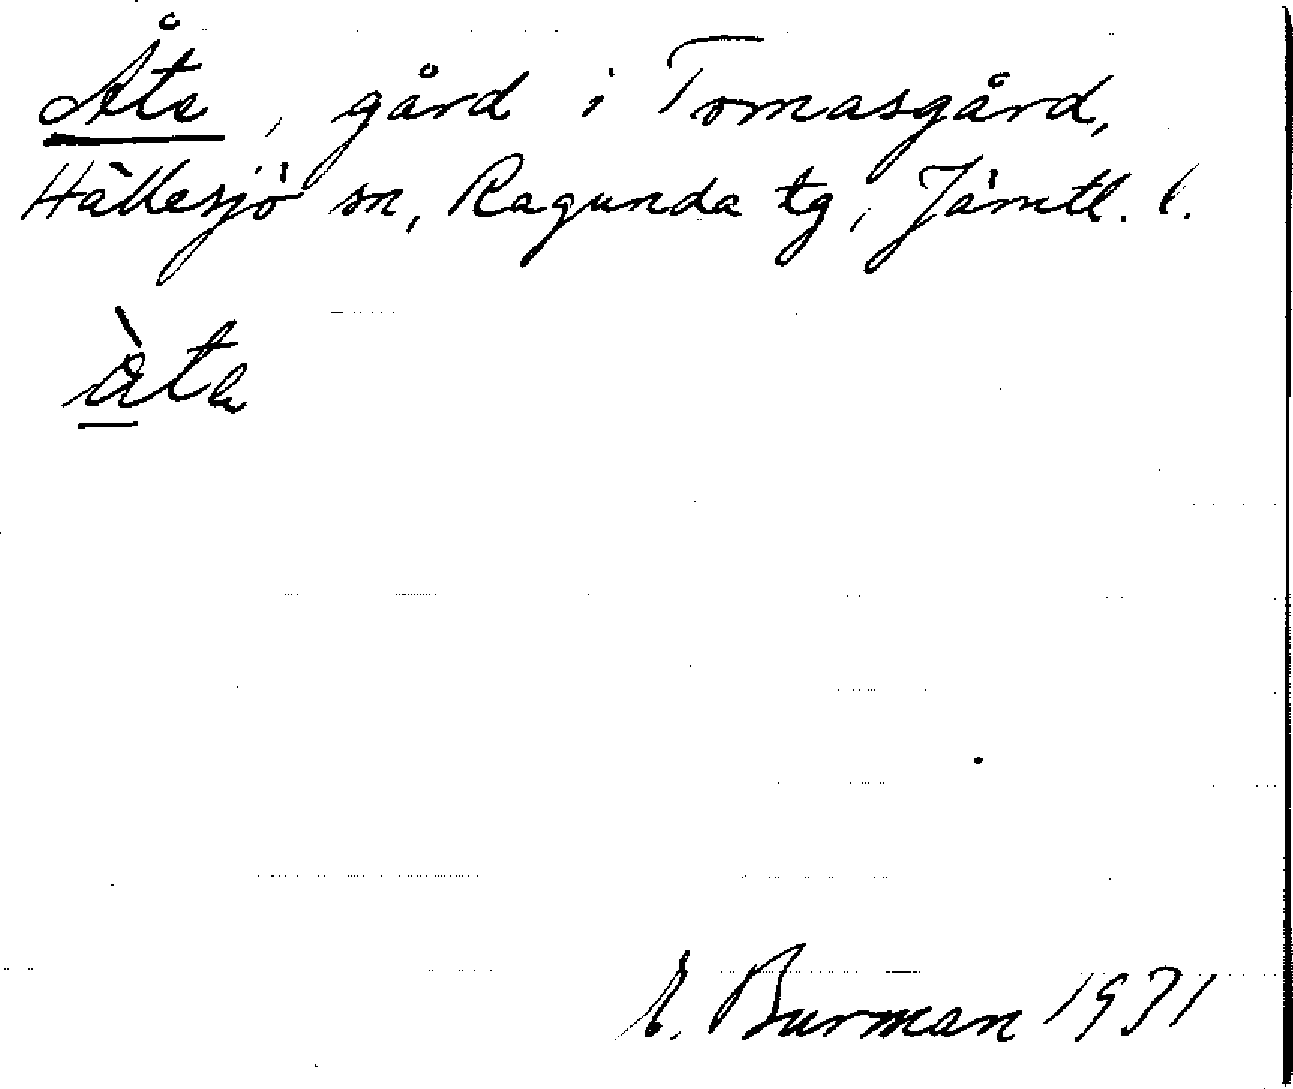 Åte, gård i Tomasgård,
Hällesjö sn, Ragunda tg, Jämtl. l.
àta
E. Burman 1971